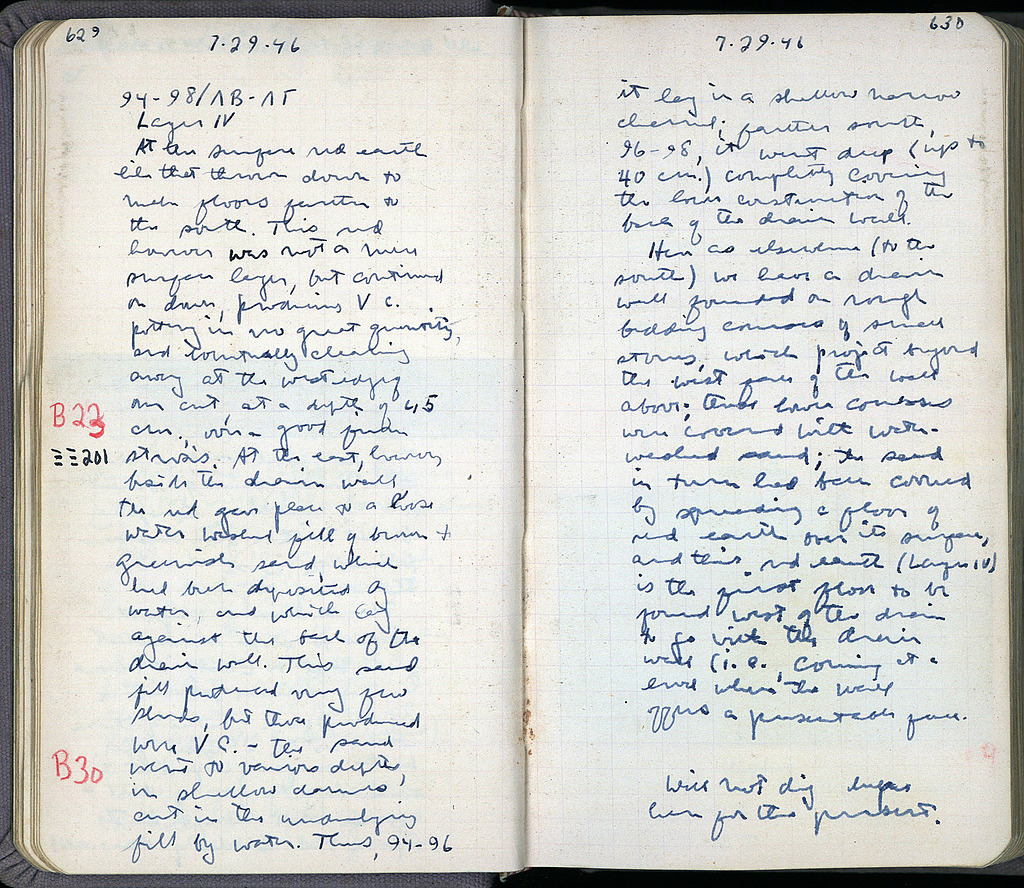 629
7·29·46
94-98/ΛB-ΛΓ
Layer IV
At the surface red earth
like that thrown down to
make floors further to
the south. This red
however was not a mere
surface layer, but continued
on down, producing V c.
pottery in no great quantity,
and eventually cleaning
away at the west edge of
our cut, at a depth of 45
B23
cm., over a good firm
ΞΞ201
stroses. At the east, however,
beside the drain wall
the red gave place to a loose
water washed fill of brown +
greenish sand, which
had been deposited by
water, and which lay
against the back of the
drain wall. This sand
fill produced very few
sherds, but those produced
were V c. - the sand
B30
went to various depths,
in shallow channels,
cut in the underlying
fill by water. Thus, 94-96
630
7·29·46
it lay in a shallow narrow
channel; farther south,
96-98, it went deep (up to
40 cm.) completely covering
the lower construction of the
back of the drain wall.
Here as elsewhere (to the
south) we have a drain
wall founded on rough
bedding courses of small
stones, which project beyond
the west face of the wall
above; these lower courses
were covered with water-
washed sand; the sand
in turn had been covered
by spreading a floor of
red earth over its surface,
and this red earth (Layer IV)
is the first floor to be
found west of the drain
to go with the drain
wall (i.e., coming at a
level where the wall
offers a presentable face.
Will not dig deeper
here for the present.